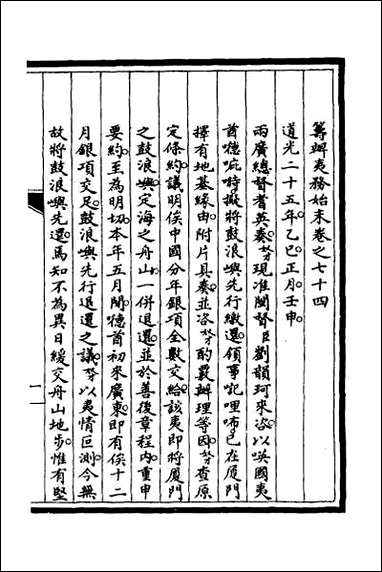 籌辦夷務始末卷之七十四
道光二十五年乙巳正月壬申
兩廣總督耆英奏。奴才現准閩督臣劉韻珂來咨。以㗸國夷
酋㘔呢時擬將鼓浪嶼先行繳還。領事㖠哩㕷。已在厦門
擇有地基緣由。附片具奏。並咨奴才酌覈辦理等因。奴才查原
定條約。議明俟中國分年銀項全數交給。該夷即將厦門
之鼓浪嶼。定海之舟山。一併退還。並於善後章程內。重申
要約。至為明切。本年五月間。㘔酋初來廣東。即有俟十二
月銀項交足。鼓浪嶼先行退還之議。奴才以夷情叵測。今無
故將鼓浪嶼先還。焉知不為異日緩交舟山地步。惟有堅
一